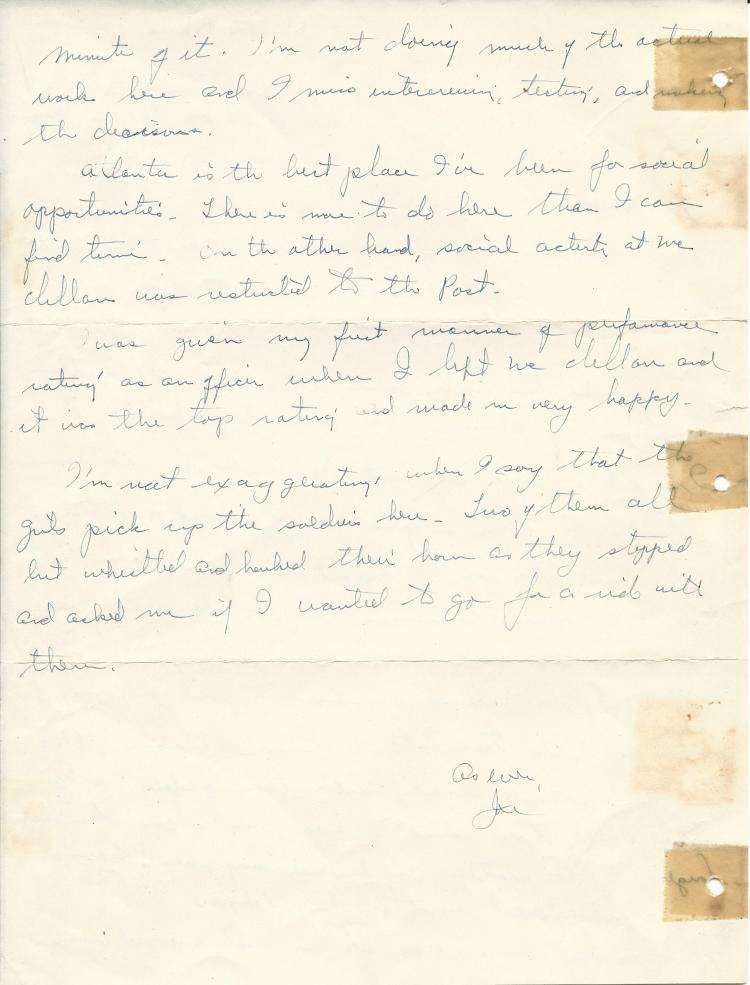 minute of it. I'm not doing much of the actual
work here and I miss interviewing, testing, and making
the decisions.
Atlanta is the best place I've been for social
opportunities. There is more to do here than I can
find time. On the other hand, social activity at Mc
Clellan was restricted to the Post.
I was given my first manner of performance
rating as an officer when I left Mc Clellan and
it was the top rating and made me very happy.
I'm not exaggerating, when I say that the
girls pick up the soldiers here. Two of them all
but whistled and honked their horn as they stopped
and asked me if I wanted to go for a ride with
them.
As ever,
Joe